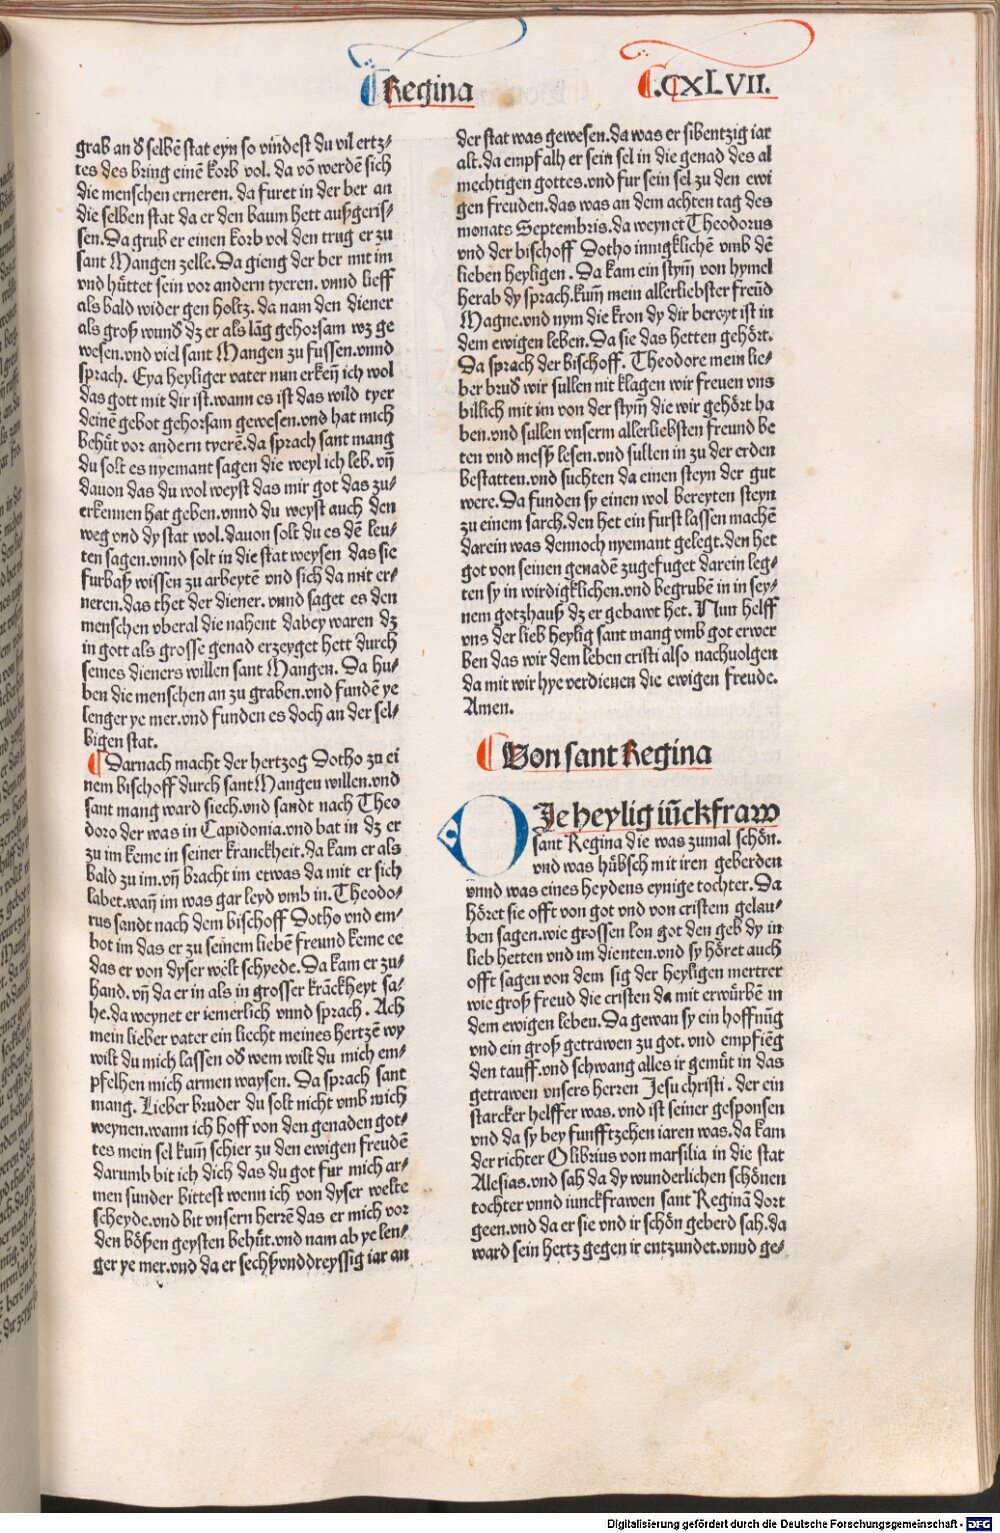 Regina
.CXLVII.
grab an d̕ selbẽ stat eyn so vindest du vil ertz⸗
tes des bring einẽ korb vol. da võ werdẽ sich
die menschen erneren. da furet in der ber an
die selben stat da er den baum hett außgeris⸗
sen. Da grub er einen korb vol den trug er zu
sant Mangen zelle. Da gieng der ber mit im
vnd hüttet sein vor andern tyeren. vnnd lieff
als bald wider gen holtz. da nam den diener
als groß wund̕ dz er als lãg gehorsam wz ge
wesen. vnd viel sant Mangen zu fussen. vnnd
sprach. Eya heyliger vater nun erkeñ ich wol
das gott mit dir ist. wann es ist das wild tyer
deinẽ gebot gehorsam gewesen. vnd hat mich
behüt vor andern tyerẽ. da sprach sant mang
du solt es nyemant sagen die weyl ich leb. vñ
dauon das du wol weyst das mir got das zu⸗
erkennen hat geben. vnnd du weyst auch den
weg vnd dy stat wol. dauon solt du es dẽ leu⸗
ten sagen. vnnd solt in die stat weysen das sie
furbaß wissen zu arbeytẽ vnd sich da mit er⸗
neren. das thet der diener. vnnd saget es den
menschen vberal die nahent dabey waren dz
in gott als grosse genad erzeyget hett durch
seines dieners willen sant Mangen. Da hu⸗
ben die menschen an zu graben. vnd fundẽ ye
lenger ye mer. vnd funden es doch an der sel⸗
bigen stat.
Darnach macht der hertzog Dotho zu ei
nem bischoff durch sant Mangen willen. vnd
sant mang ward siech. vnd sandt nach Theo
doro der was in Capidonia. vnd bat in dz er
zu im keme in seiner kranckheit. da kam er als
bald zu im. vñ bracht im etwas da mit er sich
labet. wañ im was gar leyd vmb in. Theodo⸗
rus sandt nach dem bischoff Dotho vnd em⸗
bot im das er zu seinem liebẽ freund keme ee
das er von dyser welt schyede. Da kam er zu⸗
hand. vñ da er in als in grosser krãckheyt sa⸗
he. da weynet er iemerlich vnnd sprach. Ach
mein lieber vater ein liecht meines hertzẽ wy
wilt du mich lassen od̕ wem wilt du mich em⸗
pfelhen mich armen waysen. Da sprach sant
mang. Lieber bruder du solt nicht vmb mich
weynen. wann ich hoff von den genaden got⸗
tes mein sel kum̃ schier zu den ewigen freudẽ
darumb bit ich dich das du got fur mich ar⸗
men sunder bittest wenn ich von dyser welte
scheyde. vnd bit vnsern herrẽ das er mich vor
den bößen geysten behüt. vnd nam ab ye len⸗
ger ye mer. vnd da er sechßvnddreyssig iar an
der stat was gewesen. da was er sibentzig iar
alt. da empfalh er sein sel in die genad des al
mechtigen gottes. vnd fur sein sel zu den ewi
gen freuden. das was an dem achten tag des
monats Septembris. da weynet Theodorus
vnd der bischoff Dotho innigklichẽ vmb dẽ
lieben heyligen. Da kam ein stym̃ von hymel
herab dy sprach. kum̃ mein allerliebster freũd
Magne. vnd nym die kron dy dir bereyt ist in
dem ewigen leben. Da sie das hetten gehört.
Da sprach der bischoff. Theodore mein lie⸗
ber brud̕ wir sullen nit klagen wir freuen vns
billich mit im von der stym̃ die wir gehört ha
ben. vnd sullen vnserm allerliebsten freund be
ten vnd meß lesen. vnd sullen in zu der erden
bestatten. vnd suchten da einen steyn der gut
were. Da funden sy einen wol bereyten steyn
zu einem sarch. den het ein furst lassen machẽ
darein was dennoch nyemant gelegt. den het
got von seinen genadẽ zugefuget darein leg⸗
ten sy in wirdigklichen. vnd begrubẽ in in sey⸗
nem gotzhauß dz er gebawt het. Nun helff
vns der lieb heylig sant mang vmb got erwer
ben das wir dem leben cristi also nachuolgen
da mit wir hye verdienen die ewigen freude.
Amen.
Von sant Regina
DIe heylig iũckfraw
sant Regina die was zumal schön.
vnd was hübsch mit iren geberden
vnnd was eines heydens eynige tochter. Da
höret sie offt von got vnd von cristem gelau⸗
ben sagen. wie grossen lon got den geb dy in
lieb hetten vnd im dienten. vnd sy höret auch
offt sagen von dem sig der heyligen mertrer
wie groß freud die cristen da mit erwürbẽ in
dem ewigen leben. Da gewan sy ein hoffnũg
vnd ein groß getrawen zu got. vnd empfieg̃
den tauff. vnd schwang alles ir gemüt in das
getrawen vnsers herren Jesu christi. der ein
starcker helffer was. vnd ist seiner gesponsen
vnd da sy bey funfftzehen iaren was. da kam
der richter Olibrius von marsilia in die stat
Alesias. vnd sah da dy wunderlichen schönen
tochter vnnd iunckfrawen sant Reginã dort
geen. vnd da er sie vnd ir schön geberd sah. da
ward sein hertz gegen ir entzundet. vnnd ge⸗
Digitalisierung gefördert durch die Deutsche Forschungsgemeinschaft - DFG